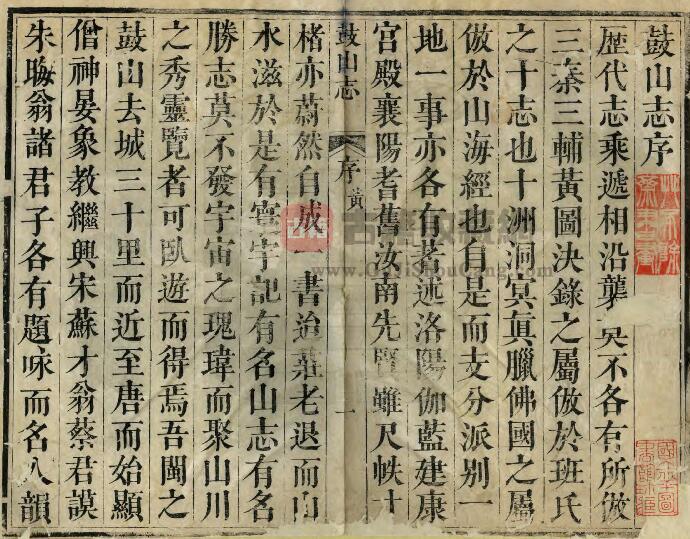 鼓山志序
歷代志乘遞相沿襲莫不各有所倣
三秦三輔黃圖決錄之屬倣於班氏
之十志也十洲洞冥眞臘佛國之屬
倣於山海經也自是而支分派別一
地一事亦各有著述洛陽伽藍建康
宮殿襄陽耆舊汝南先賢雖尺帙寸
鼓山志
序 黃
一
楮亦蔚然自成一書迨莊老退而山
水滋於是有寰宇記有名山志有名
勝志莫不發宇宙之瑰瑋而聚山川
之秀靈覽者可臥遊而得焉吾閩之
鼓山去城三十里而近至唐而始顯
僧神晏象教繼興宋蘇才翁蔡君謨
朱晦翁諸君子各有題咏而名人韻